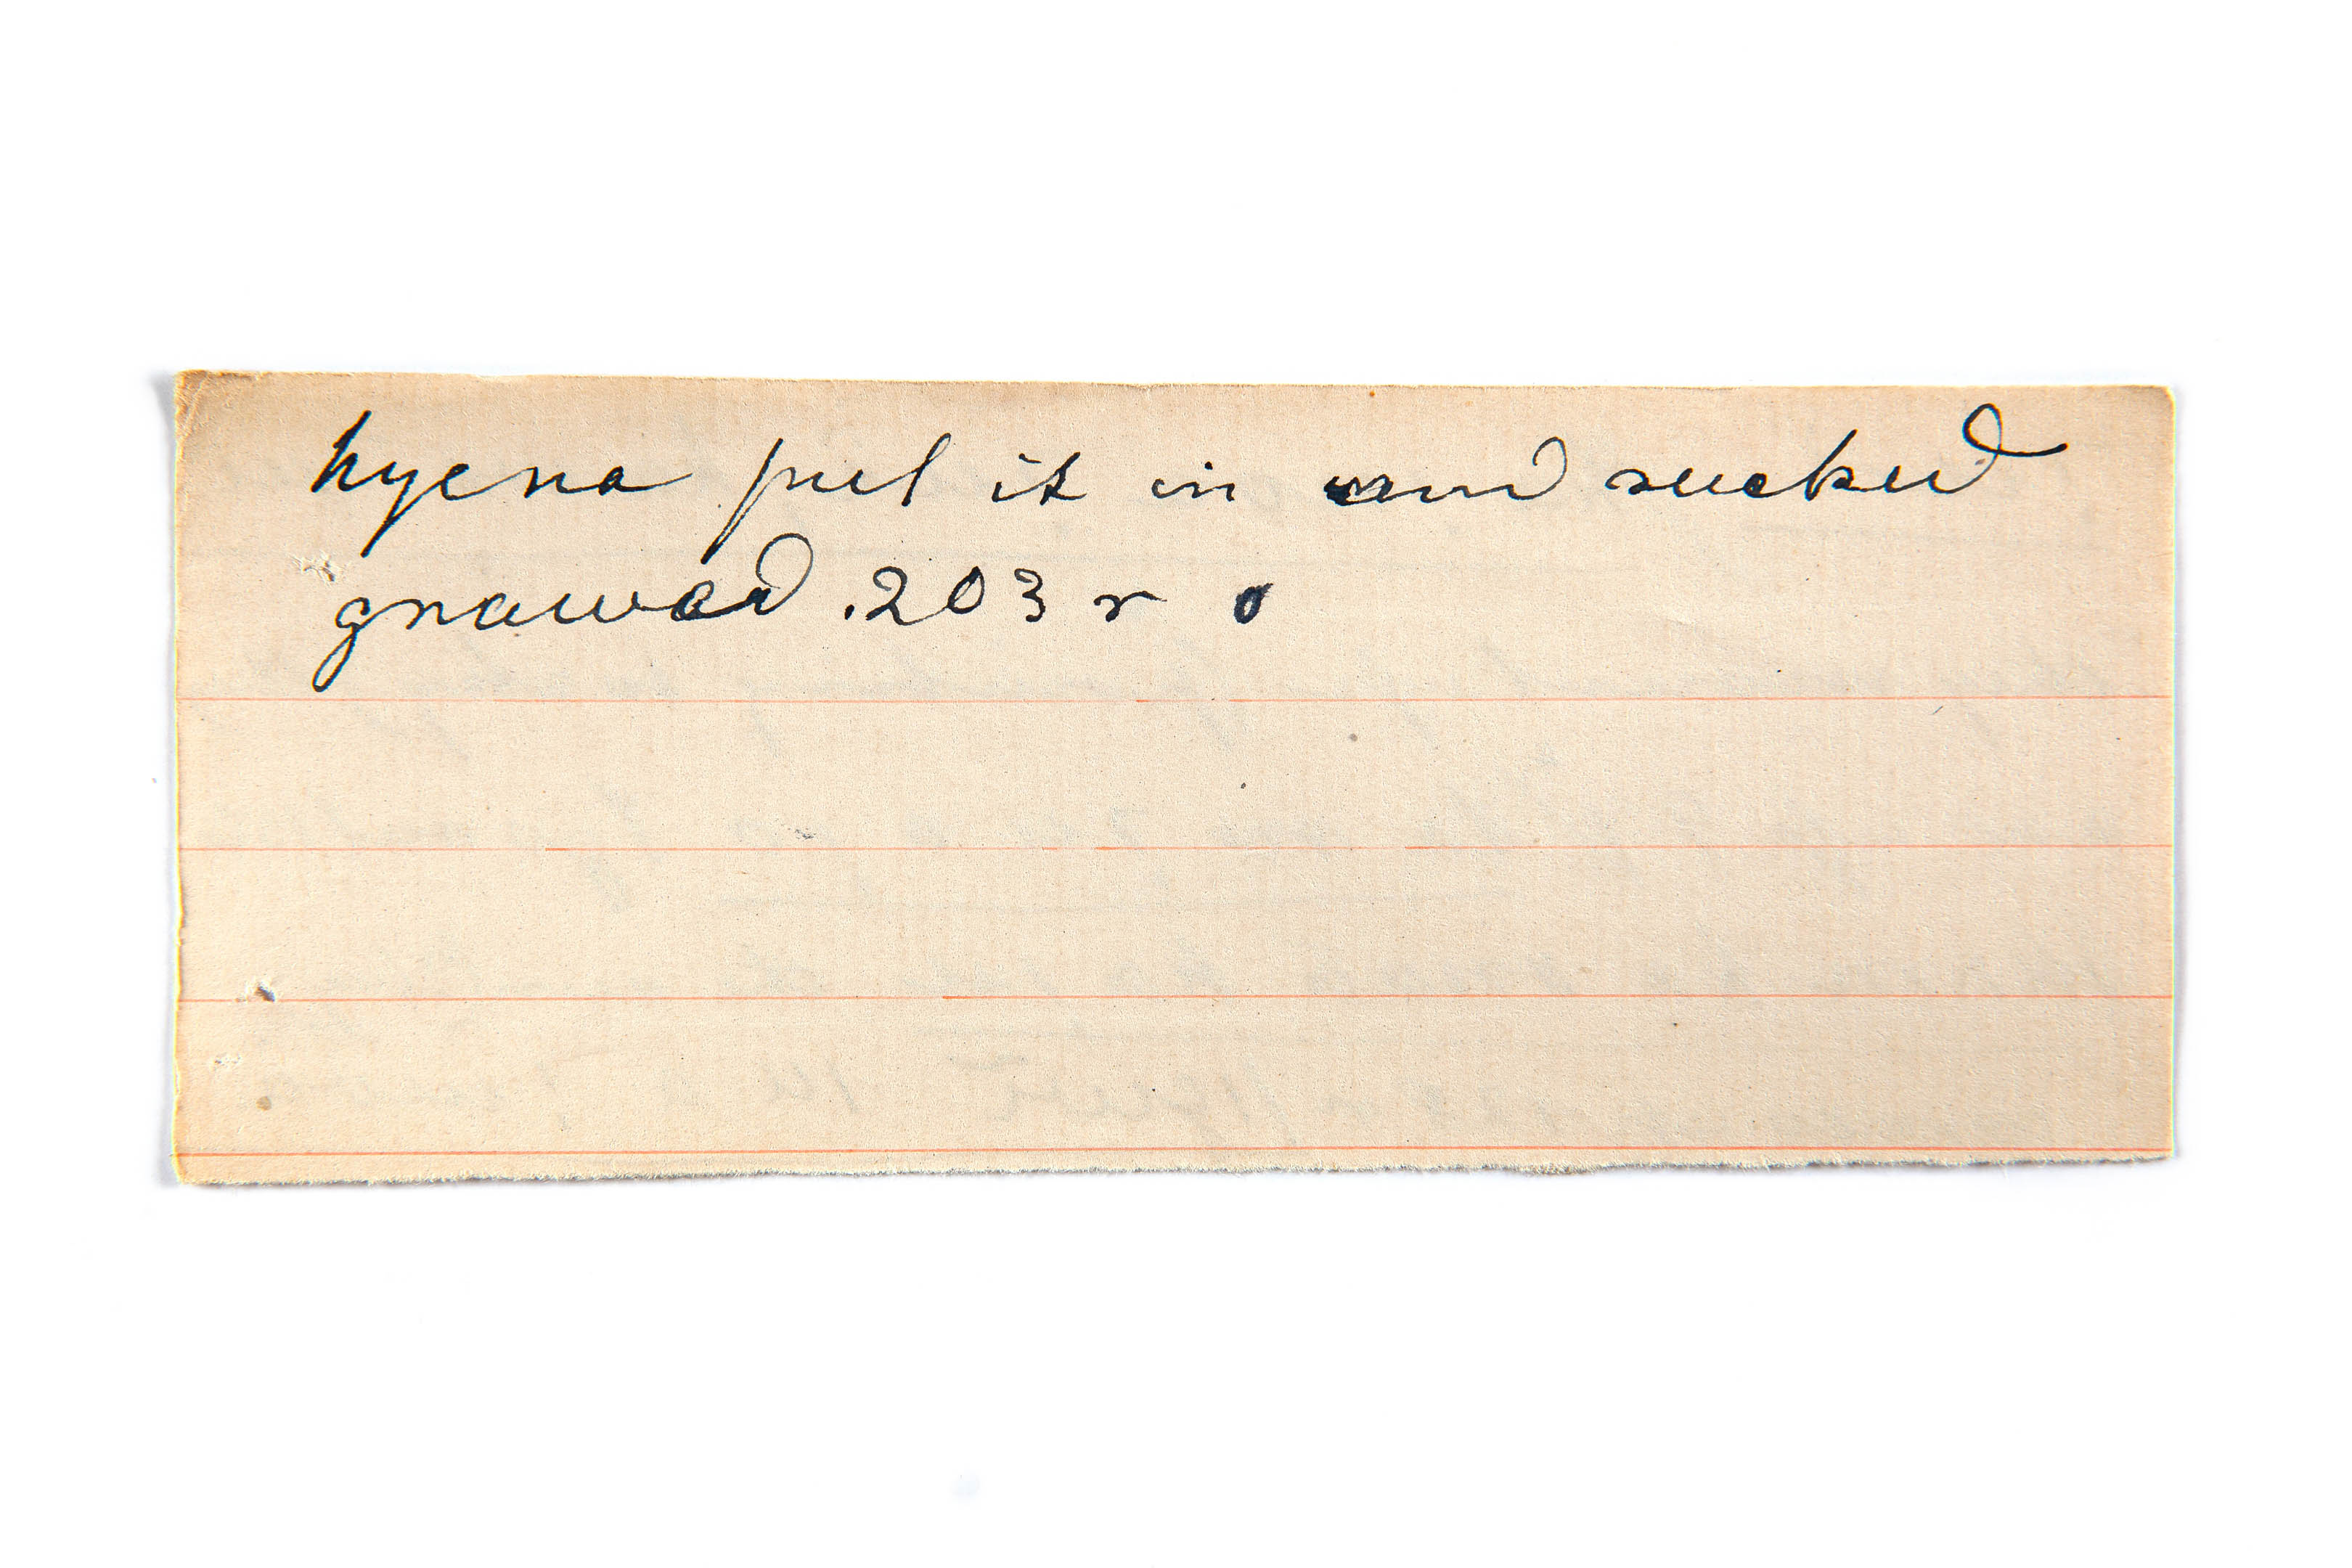 hyena put it in and sucked
gnawed .203 r o